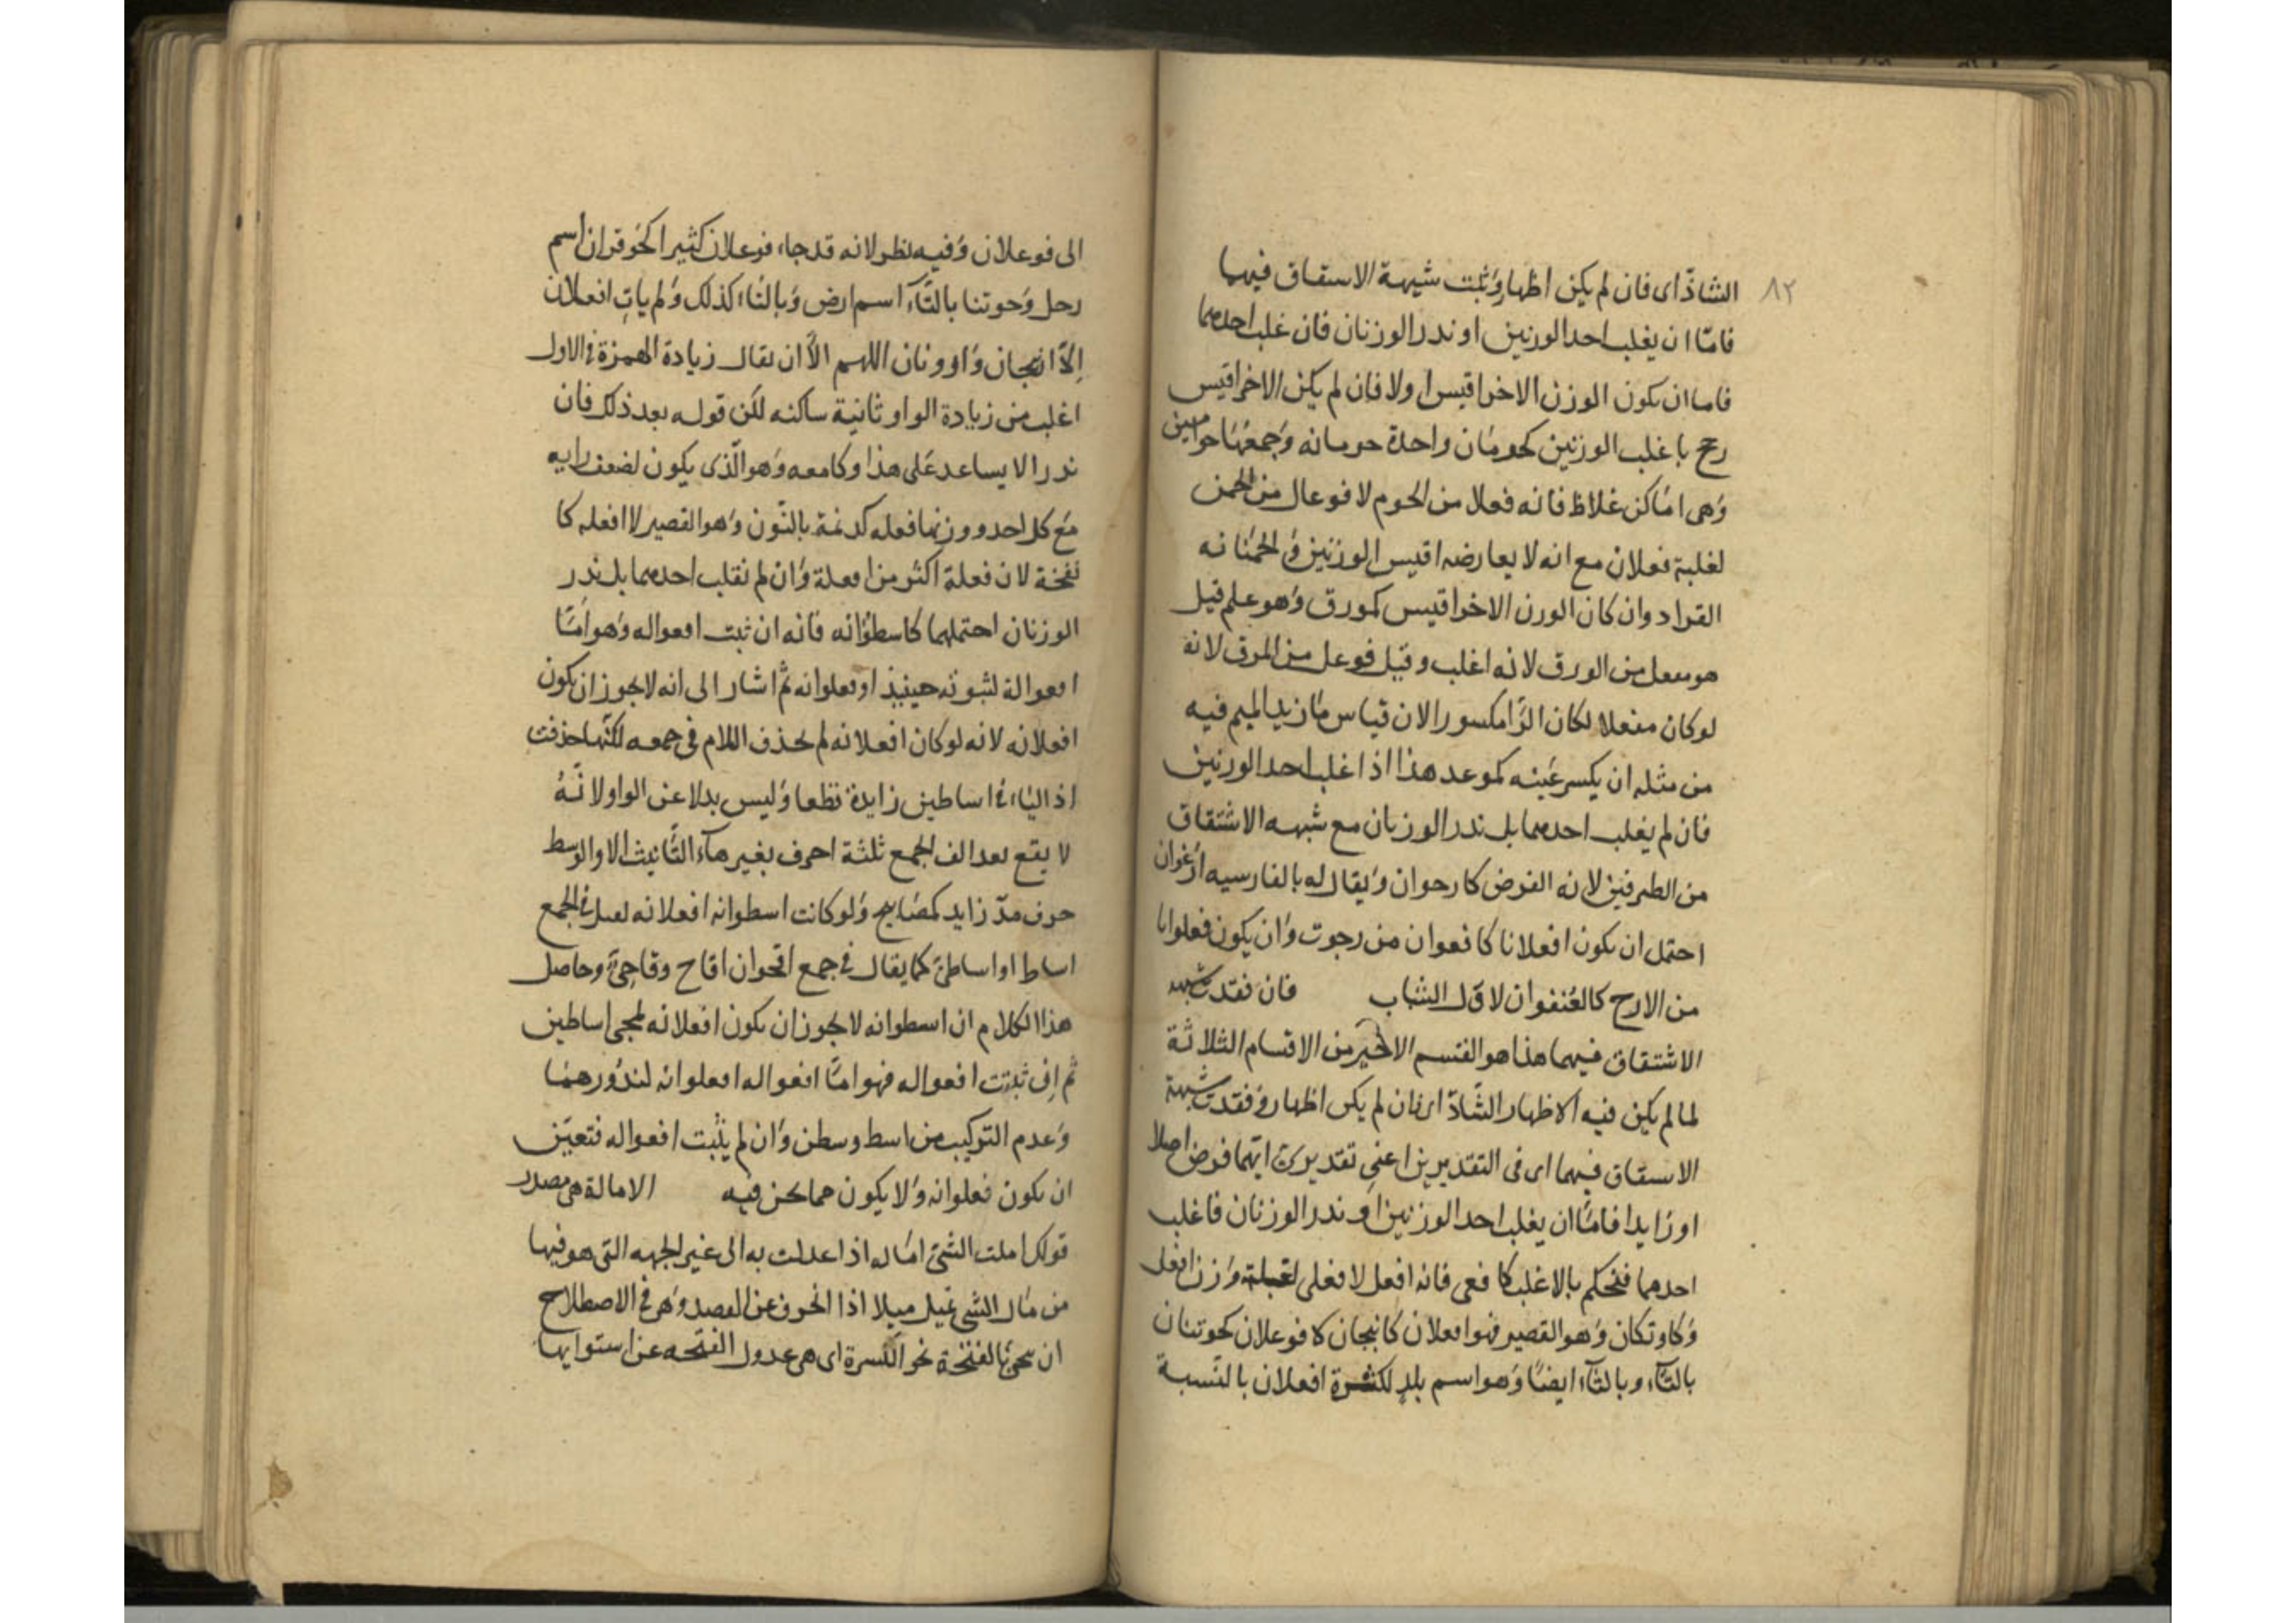 ٨٢
الشاذّ اى فان لم يكن اظهار وثبت شبهة الاستقاق فيهما
فامّا ان يغلب احد الوزنين او ندر الوزنان فان غلب احدهما
فاما ان يكون الوزن الاخر اقيس اولا فان لم يكن الاخر اقيس
رجح باغلب الوزنين كحومان واحدة حومانه وجمعها حوامين
وهى اماكن غلاظ فانه فعلان من الحوم لا فوعال من الحمن
لغلبة فعلان مع انه لا يعارضه اقيس الوزنين و الحمنانه
القراد وان كان الوزن الاخر اقيس كمورق وهو علم قيل
هو مفعل من الورق لانه اغلب وقيل فوعل من المرق لانه
لوكان مفعلا لكان الرا مكسورا لان قياس ما زيد الميم فيه
من مثله ان يكسر عينه كموعد هذا اذا غلب احد الوزنين
فان لم يغلب احدهما بل ندر الوزنان مع شبهه الاشتقاق
من الطرفين لانه الفرض كارجوان ويقال له بالفارسيه ارغوان
احتمل ان يكون افعلانا كافعوان من رجوت وان يكون فعلوانا
من الارج كالعُنفوان لاوّل الشباب فان فقدت شبهه
الاشتقاق فيهما هذا هو القسم الاخير من الاقسام الثلاثة
لما لم يكن فيه الاظهار الشّاذّ اى فان لم يكن اظهار وفقدت شبهة
الاستقاق فيهما اى فى التقديرين اعنى تقديرى ايّهما فرض اصلا
او زايدا فامّا ان يغلب احد الوزنين او ندر الوزنان فاغلب
احدهما فتحكم بالاغلب كافعى فانه افعل لا فعلى لغلبة وزن افعل
وكاوتكان وهو القصير فهو افعلان كانبجان لا فوعلان كحوتنان
بالتّاء وبالثاء ايضًا وهو اسم بلد لكثرة افعلان بالنّسبة
الى فوعلان وفيه نظر لانه قد جاء فوعلان كثيرا كحوفزان اسم
رجل وحوتنا بالتّاء اسم ارض وبالثاء كذلك ولم يات افعلان
اِلاّ انبجان واوونان اللهم الاّ ان يقال زيادة الهمزة فى الاول
اغلب من زيادة الواو ثانية ساكنه لكن قوله بعد ذلك فان
ندرا لا يساعد على هذا وكامعه وهو الّذى يكون لضعف رايه
مع كل احد ووزنها فعله كدنمة بالنّون وهو القصير لا افعله كا
نفخة لان فعلة اكثر من افعلة وان لم تغلب احدهما بل ندر
الوزنان احتملهما كاسطوانه فانه ان ثبت افعواله وهو امّا
افعوالة لثبوته حينيذ او فعلوانه ثم اشار الى انه لا يجوز ان يكون
افعلانه لانه لوكان افعلانه لم يحذف اللام فى جمعه لكنّها حذفت
اذ الياء فى اساطين زايدة قطعا وليس بدلا عن الواو لانّهُ
لا يقع بعد الف الجمع ثلثة احرف بغير هاء التّانيث الا والوسط
حرف مدّ زايد كمصابيح ولو كانت اسطوانه افعلانه لقيل فى الجمع
اساط او اساطىّ كما يقال فى جمع اقحوان اقاح وقاحىّ وحاصل
هذا الكلام ان اسطوانه لا يجوز ان يكون افعلانه لمجى اساطين
ثم اِن ثبتت افعواله فهو امّا افعواله او فعلوانه لندُورهما
وعدم التركيب من اسط وسطن وان لم يثبت افعواله فتعيّن
ان يكون فعلوانه والا يكون مما كن فيه الامالة هى مصدر
قولك املت الشئ اماله اذا عدلت به الى غير الجهه التى هو فيها
من مال الشى يميل ميلا اذا انحرف عن القصد وهى فى الاصطلاح
ان ينحى بالفتحة نحو الكسرة اى هى عدول الفتحه عن استوايها